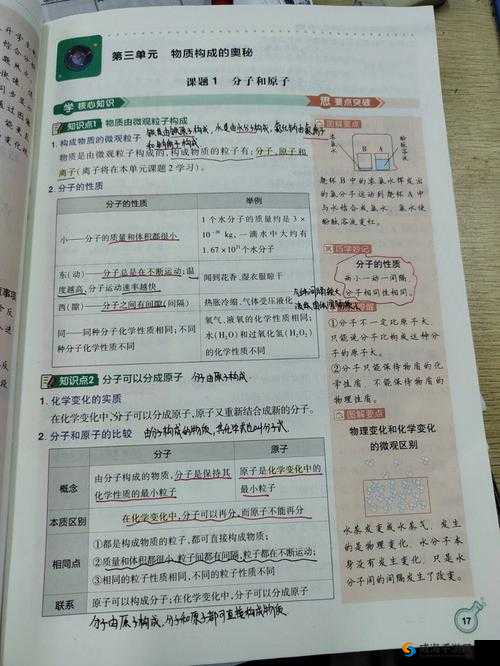 第三单元 物质构成的奥秘
课题1 分子和原子
学 核心知识
思 要点突破
知识点1 物质由微观粒子构成
1. 构成物质的微观粒子
物质是由微观粒子构成的,构成物质的粒子有:分子,原子和
离子(离子将在本单元课题2学习)。
2. 分子的性质
分子的性质 举例
小——分子的质量和体积都很小
1个水分子的质量约是3×
10⁻²⁶ kg,一滴水中大约有
1.67×10²¹个水分子
东(动)——分子总是在不断运动:温
度越高,分子运动速率越快
闻到花香、湿衣服晾干
西(隙)——分子之间有间隙(间隔)
热胀冷缩、气体受压液化
同——同种分子化学性质相同;不同
种分子化学性质不同
氧气、液氧的化学性质相同;
水(H₂O)和过氧化氢(H₂O₂)
的化学性质不同
知识点2 分子可以分成原子
分子由原子构成
1. 化学变化的实质
在化学变化中,分子可以分成原子,原子又重新结合成新的分子。
2. 分子和原子的比较
分子 原子
概念
由分子构成的物质,分子是保持其
化学性质的最小粒子
原子是化学变化中的
最小粒子
本质区别
在化学变化中,分子可以再分,而原子不能再分
相同点
①都是构成物质的粒子,都可直接构成物质;
②质量和体积都很小,粒子间都有间隔,粒子都在不断运动;
③相同的粒子性质相同,不同的粒子性质不同
联系
原子可以构成分子;在化学变化中,分子可分成原子
分子由原子构成,分子和原子都可直接构成物质
图解要点
浓氨水
酚酞溶液
A
B
烧杯B中的浓氨水挥发出
的氨分子运动到烧杯A中
与水结合成氨水,氨水使
酚酞溶液变红。
巧学妙记
分子的性质
两小一动一间隔,
分子相同性相同。
①分子不一定比原子大,
只能说分子比构成这种分
子的原子大。
②分子只能保持物质的化
学性质,不能保持物质的
物理性质。
图解要点
物理变化和化学变化
的微观区别
水蒸发变成水蒸气,发生
的是物理变化,水分子本
身没有发生变化,只是水
分子间的间隔发生了改变。
17